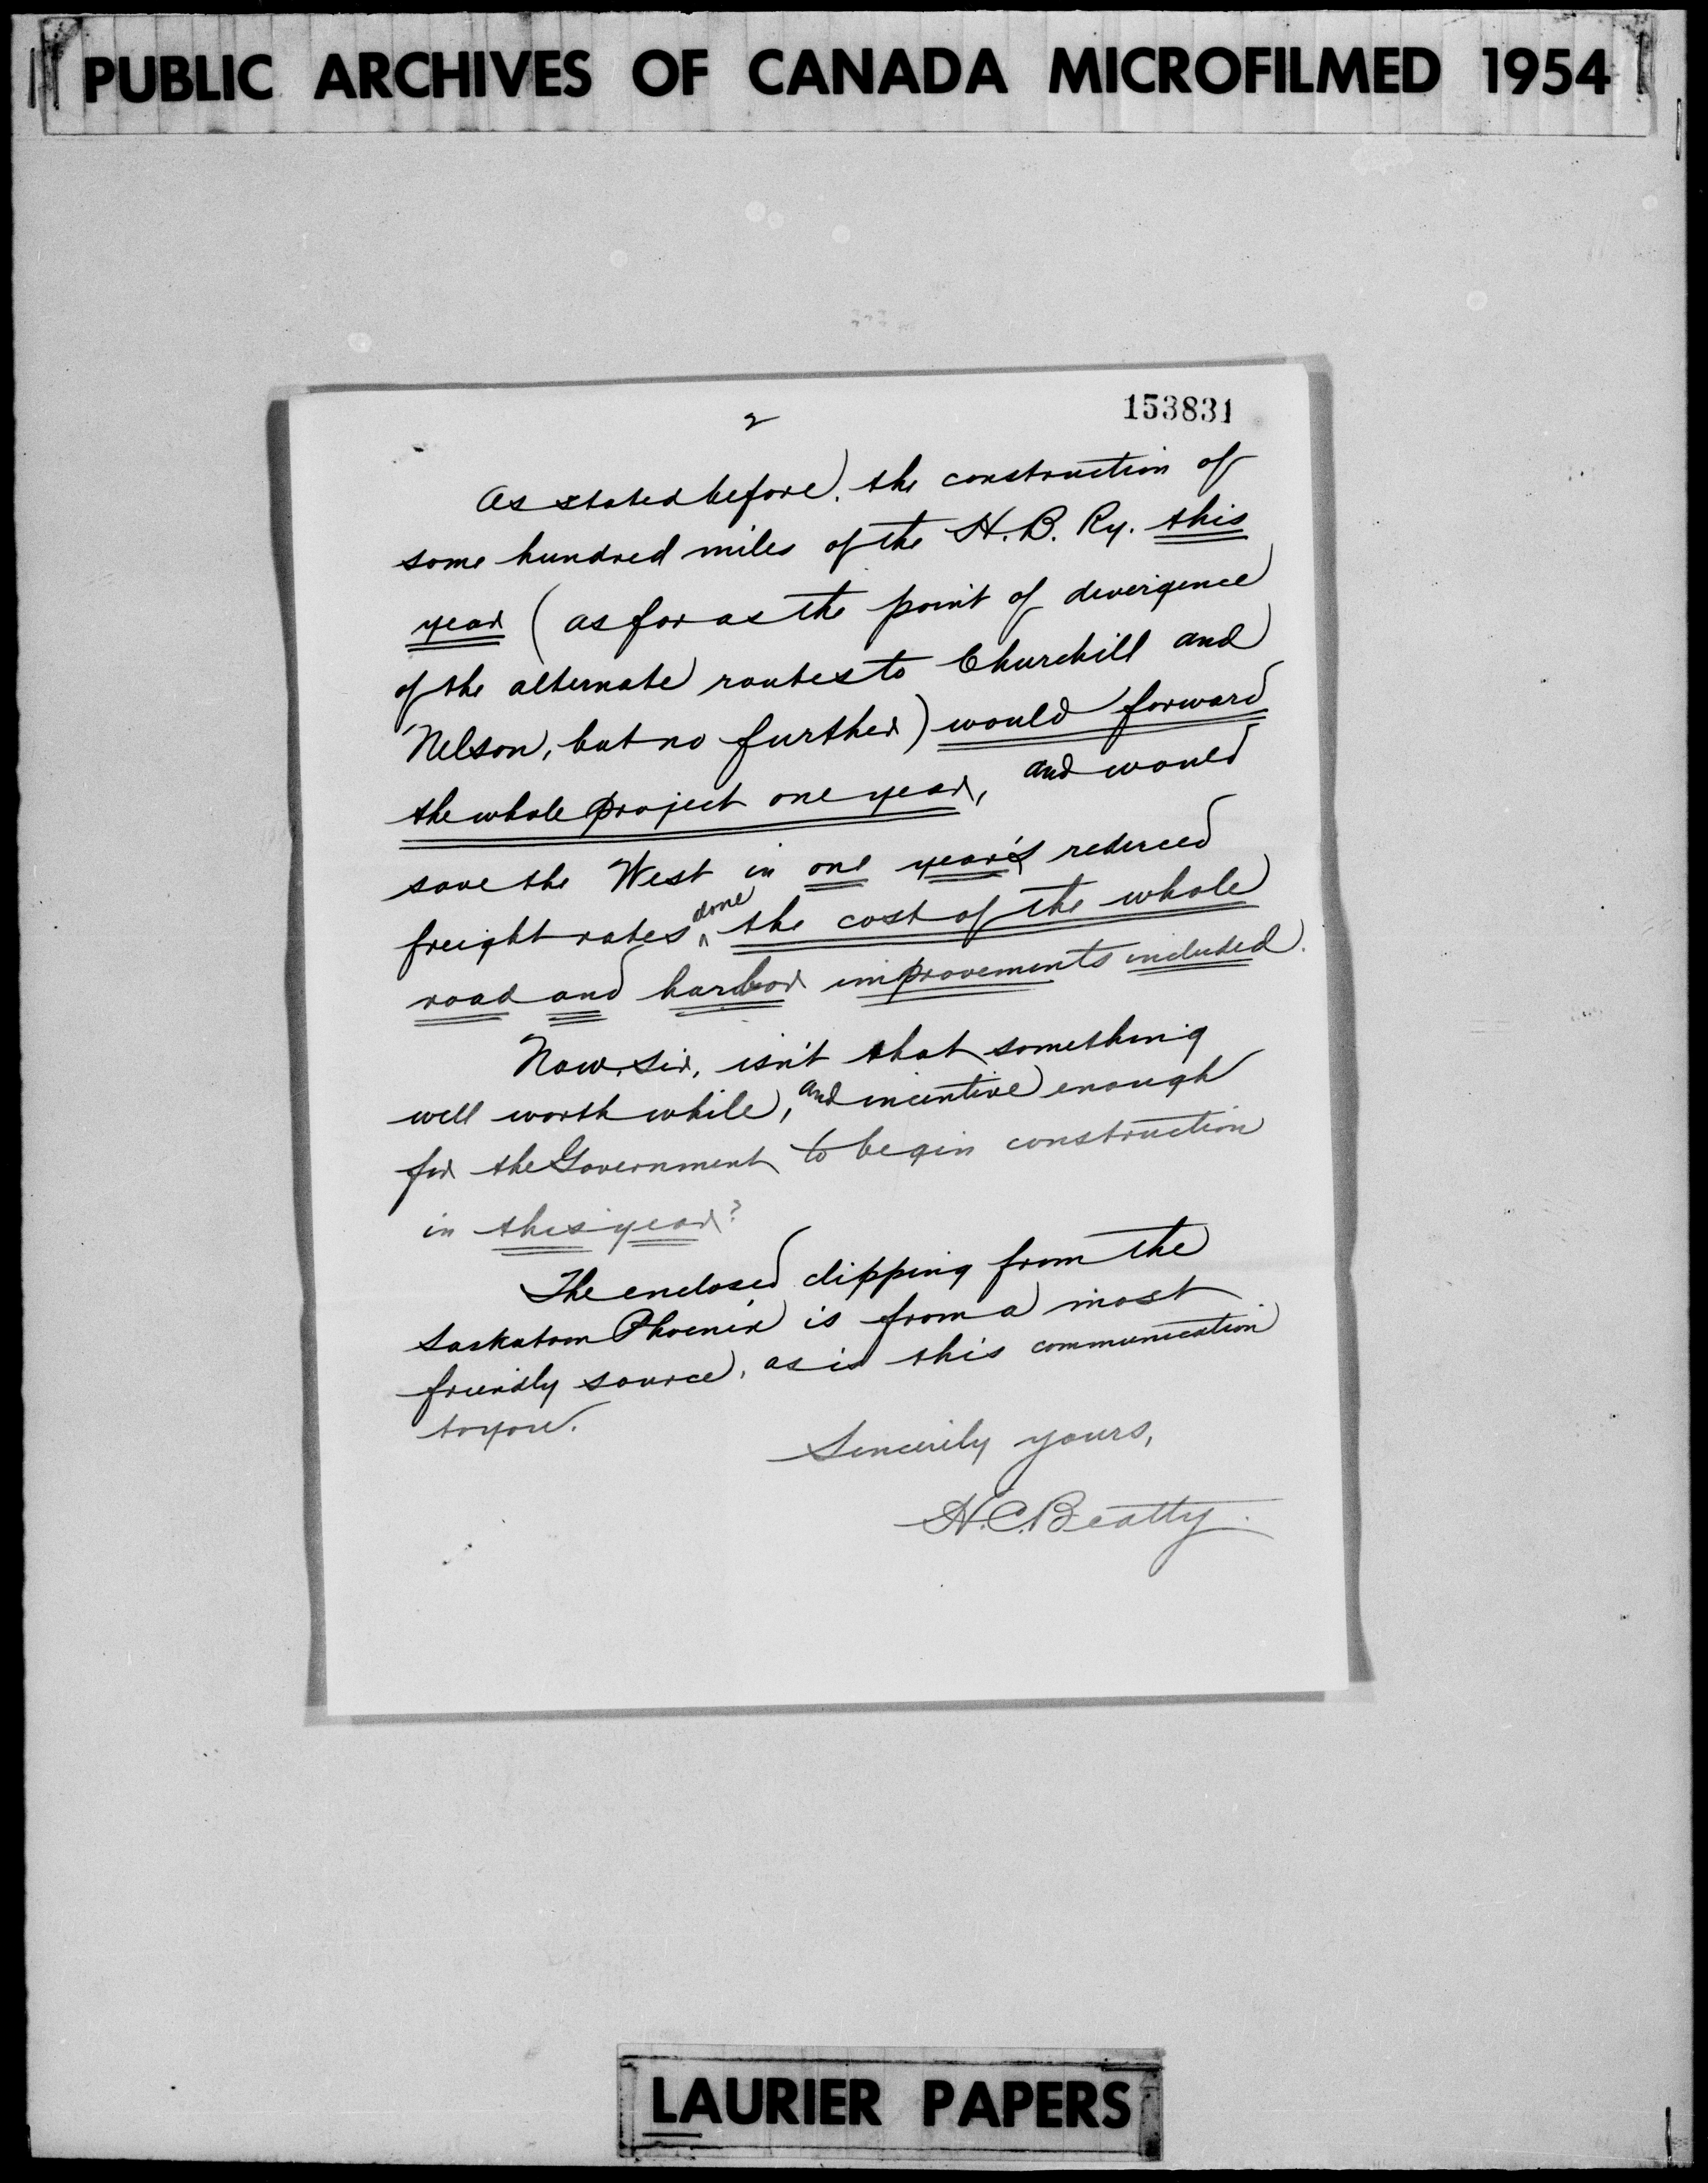 PUBLIC ARCHIVES OF CANADA MICROFILMED 1954
2
153831
As stated before, the construction of
some hundred miles of the H. B. Ry. this
year (as far as the point of divergence
of the alternate routes to Churchill and
Nelson, but no further) would forward
the whole project one year, and would
save the West in one year's reduced
freight rates, done the cost of the whole
road and harbor improvements included.
Now, sir, isn't that something
well worth while, and incentive enough
for the Government to begin construction
in this year?
The enclosed clipping from the
Saskatoon Phoenix is from a most
friendly source, as is this communication
to you.
Sincerely yours,
H. C. Beatty.
LAURIER PAPERS